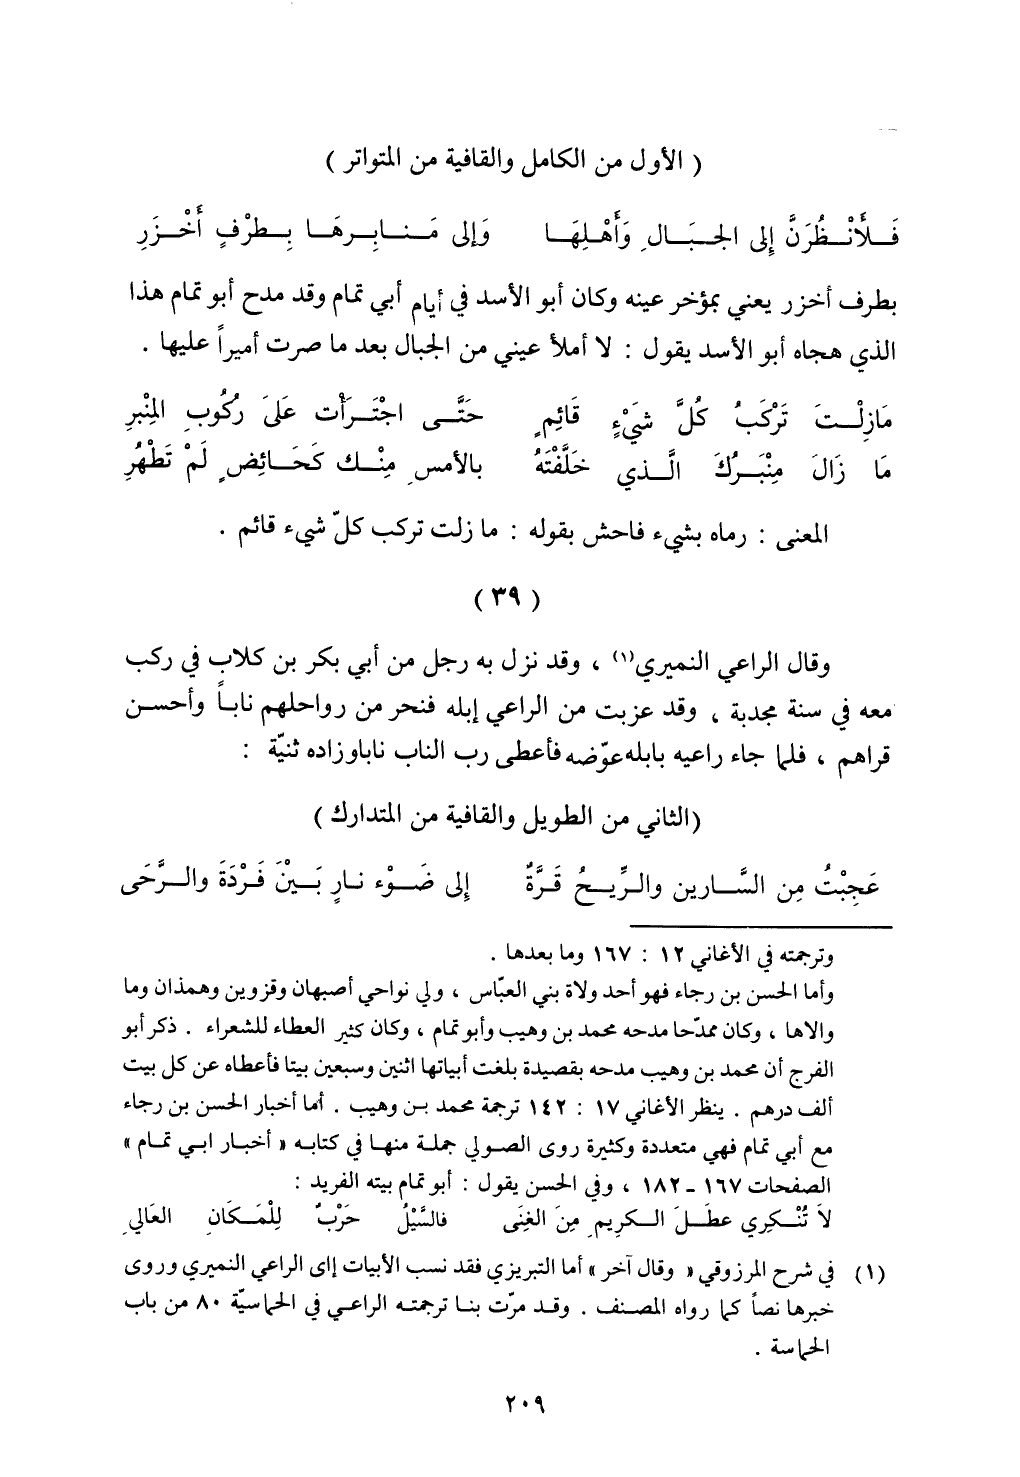 ( الأول من الكامل والقافية من المتواتر )
فَـلأَنْـظُرَنَّ إِلى الجـبَـالِ وَأَهْـلِهَـا وَإِلى مَـنـابِـرِهَـا بِـطرْفٍ أَخْـزَرِ
بطرف أخزر يعني بمؤخر عينه وكان أبو الأسد في أيام أبي تمام وقد مدح أبو تمام هذا
الذي هجاه أبو الأسد يقول : لا أملأ عيني من الجبال بعد ما صرت أميراً عليها .
مَازِلْـتَ تَرْكَبُ كُلَّ شَيْءٍ قَائِمٍ حَتَّـى اجْتَـرَأْت عَلَى رُكُوبِ المِنْبرِ
مَا زَالَ مِنْبَـرُكَ الَّـذي خَلَّفْتَهُ بالأمسِ مِنْـك كَحَـائِضٍ لَمْ تَطْهُرِ
المعنى : رماه بشيء فاحش بقوله : ما زلت تركب كلّ شيء قائم .
( ٣٩ )
وقال الراعي النميري(١) ، وقد نزل به رجل من أبي بكر بن كلاب في ركب
معه في سنة مجدبة ، وقد عزبت من الراعي إبله فنحر من رواحلهم ناباً وأحسن
قراهم ، فلما جاء راعيه بابله عوّضه فأعطى رب الناب نابا وزاده ثنيّة :
(الثاني من الطويل والقافية من المتدارك )
عَجِبْتُ مِن السَّـارين والـرِّيـحُ قَـرَّةٌ إِلى ضَـوْء نـارٍ بَـيْنَ فَـرْدَةَ والـرَّحَى
وترجمته في الأغاني ١٢ : ١٦٧ وما بعدها .
وأما الحسن بن رجاء فهو أحد ولاة بني العبّاس ، ولي نواحي أصبهان وقزوين وهمذان وما
والاها ، وكان ممدّحا مدحه محمد بن وهيب وأبو تمام ، وكان كثير العطاء للشعراء . ذكر أبو
الفرج أن محمد بن وهيب مدحه بقصيدة بلغت أبياتها اثنين وسبعين بيتا فأعطاه عن كل بيت
ألف درهم . ينظر الأغاني ١٧ : ١٤٢ ترجمة محمد بن وهيب . أما أخبار الحسن بن رجاء
مع أبي تمام فهي متعددة وكثيرة روى الصولي جملة منها في كتابه « أخبار ابي تمام »
الصفحات ١٦٧ - ١٨٢ ، وفي الحسن يقول : أبو تمام بيته الفريد :
لاَ تُنْـكِري عطَـلَ الـكريمِ مِنَ الغِنَى فالسَّيْلُ حَرْبٌ لِلْمَـكَانِ العَالي
(١) في شرح المرزوقي « وقال آخر » أما التبريزي فقد نسب الأبيات إاى الراعي النميري وروى
خبرها نصاً كما رواه المصنف . وقد مرّت بنا ترجمته الراعي في الحماسيّة ٨٠ من باب
الحماسة .
٢٠٩